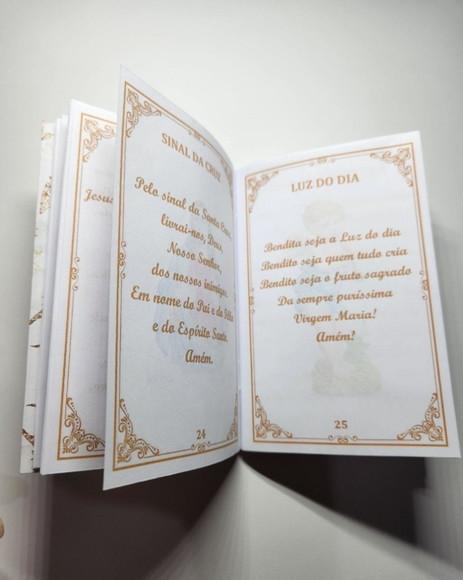 Jesus
SINAL DA CRUZ
Pelo sinal da Santa Cruz,
livrai-nos, Deus,
Nosso Senhor,
dos nossos inimigos.
Em nome do Pai e do Filho
e do Espírito Santo.
Amém.
24
LUZ DO DIA
Bendita seja a Luz do dia
Bendito seja quem tudo cria
Bendito seja o fruto sagrado
Da sempre puríssima
Virgem Maria!
Amém?
25